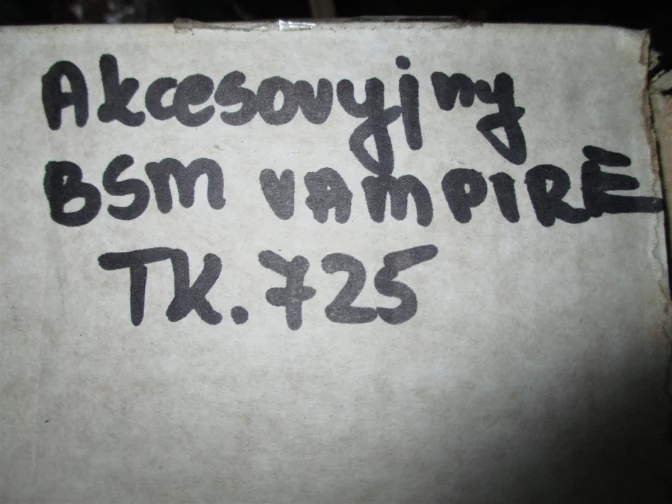 Akcesoryjny
BSM VAMPIRE
TK.725